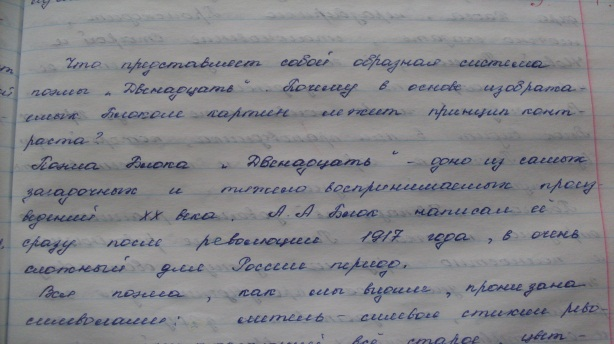 Что представляет собой образная система
поэмы „Двенадцать". Почему в основе изобража-
емых Блоком картин лежит принцип конт-
раста?
Поэма Блока „Двенадцать" - одно из самых
загадочных и тяжело воспринимаемых произ
ведений XX века. А.А Блок написал её
сразу после революции 1917 года, в очень
сложный для России период.
Вся поэма, как мы видим, пронизана
символами: метель - символ стихии рево-
всё старое, цвет-